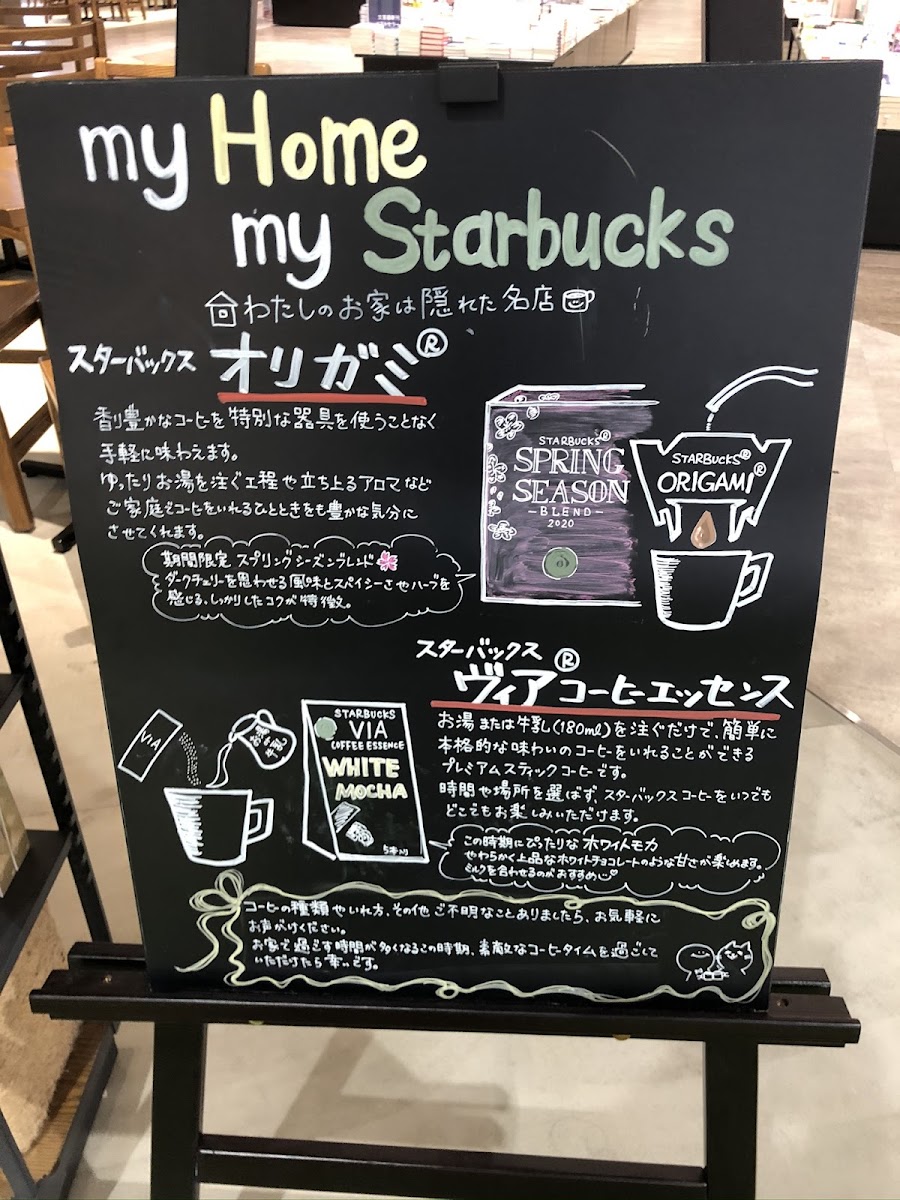 my Home
my Starbucks
わたしのお家は隠れた名店
スターバックス オリガミ®
香り豊かなコーヒーを特別な器具を使うことなく
手軽に味わえます。
ゆったりお湯を注ぐ工程や立ち上るアロマなど
ご家庭でコーヒーをいれるひとときをも豊かな気分に
させてくれます。
期間限定 スプリングシーズンブレンド
ダークチェリーを思わせる風味とスパイシーさやハーブを
感じる、しっかりしたコクが特徴。
STARBUCKS®
SPRING
SEASON
-BLEND-
2020
STARBUCKS®
ORIGAMI®
スターバックス
ヴィア® コーヒーエッセンス
お湯または牛乳(180ml)を注ぐだけで、簡単に
本格的な味わいのコーヒーをいれることができる
プレミアムスティックコーヒーです。
時間や場所を選ばず、スターバックスコーヒーをいつでも
どこでもお楽しみいただけます。
VIA
お湯or牛乳
STARBUCKS
VIA
COFFEE ESSENCE
WHITE
MOCHA
5本入り
この時期にぴったりなホワイトモカ
やわらかく上品なホワイトチョコレートのような甘さが楽しめます。
ミルクを合わせるのがおすすめ
コーヒーの種類やいれ方、その他ご不明なことありましたら、お気軽に
お声がけください。
お家で過ごす時間が多くなるこの時期、素敵なコーヒータイムを過ごして
いただけたら幸いです。